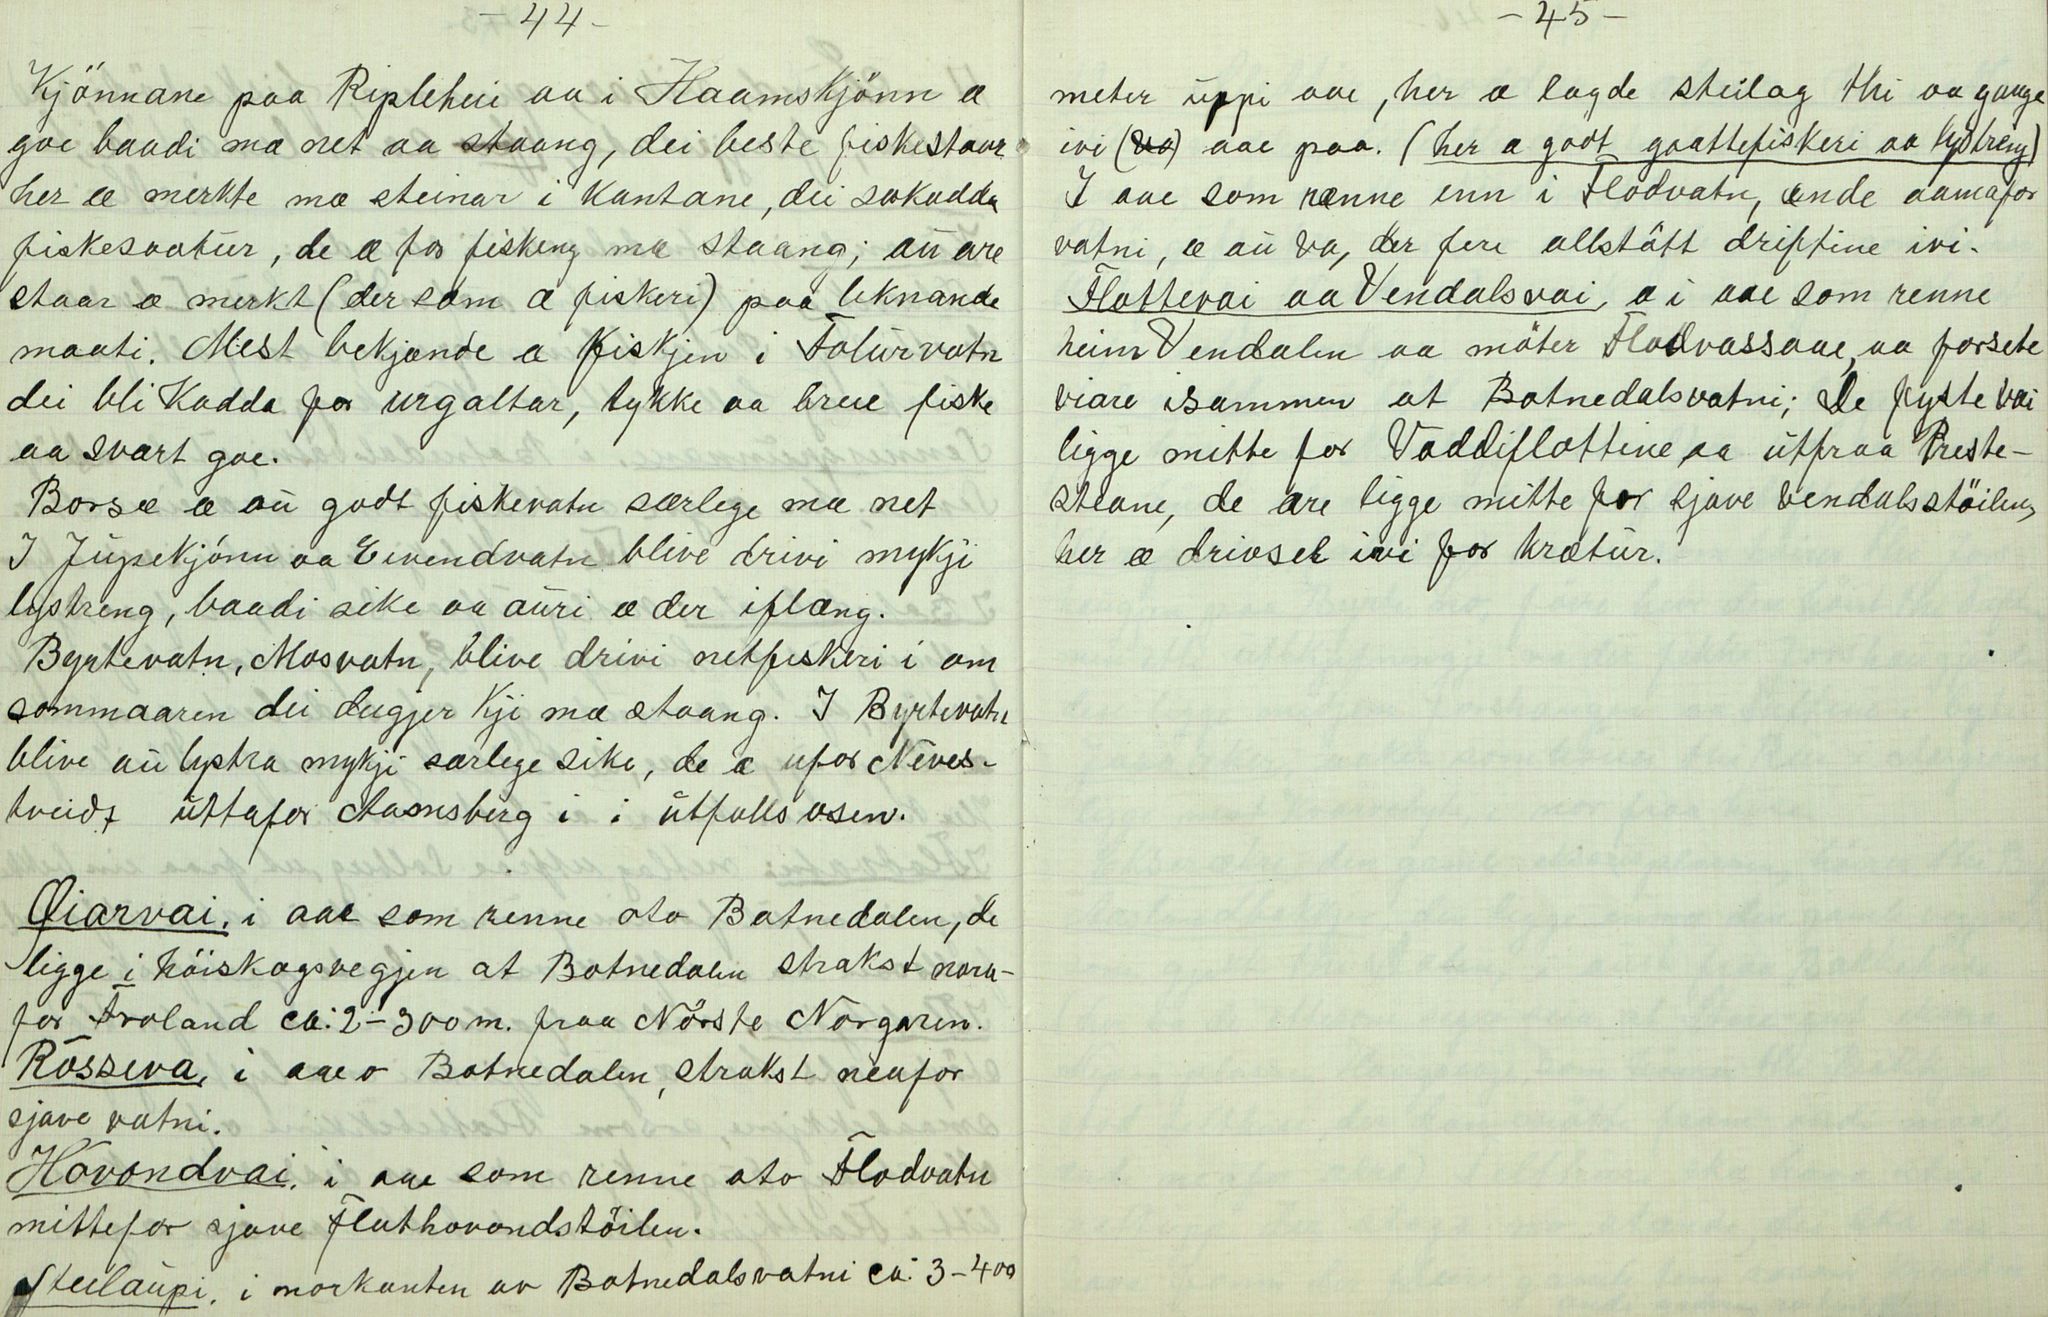 - 44 -
Kjönnane paa Ripleheii aa i Haamskjönn æ
goe baadi mæ net aa staang, dei beste fiskestaar
her æ merkte mæ steinar i kantane, dei sokadda
fiskesaatur, de æ for fisking mæ staang; aú are
staar æ merkt (der som æ fiskeri) paa liknande
maati. Mest bekjende æ fiskjen i Folurvatn
dei bli kadda for urgaltar, tykke aa breie fiske
aa svært goe.
Borsæ æ aú godt fiskevatn særlege mæ net
I Jupekjönn aa Eivendvatn blive drivi mykji
lystreng, baadi sike aa auri æ der iflæng.
Byrtevatn, Mosvatn, blive drivi netfiskeri i om
sommaaren dei dugjer kji mæ staang. I Byrtevatn
blive aú lystra mykji særlege sike, de æ ufor Neves-
tveidt úttafor Aamsberg i i útfallsosen.
Qiarvai, i aae som renne oto Botnedalen, de
ligge i höiskogsvegjen at Botnedalen strakst nora-
for Froland ca: 2-300 m. fraa Nörste Norgaren.
Rosseva, i aae o Botnedalen, strakst neafor
sjave vatni.
Hovondvai, i aae som renne oto Flodvatn
mittefor sjave Flathovondstöilen.
Steilaupi, i norkanten av Botnedalsvatni ca: 3-400
- 45 -
meter uppi aae, her æ lagde steilag thi aa gange
ivi (va) aae paa. (her æ godt gaattefiskeri aa lystreng)
I aae som renne enn i Flodvatn, ænde aamafor
vatni, æ aú va, der fere allstött driftine ivi.
Flottevai aa Vendalsvai, æ i aae som renne
heim Vendalen aa möter Flodvassaae, aa forsete
viare isammen at Botnedalsvatni; De fyste vai
ligge mitte for Vaddiflottine, aa útfraa Preste-
steane, de are ligge mitte for sjave Vendalsstöilen,
her æ drivsel ivi for krætur.